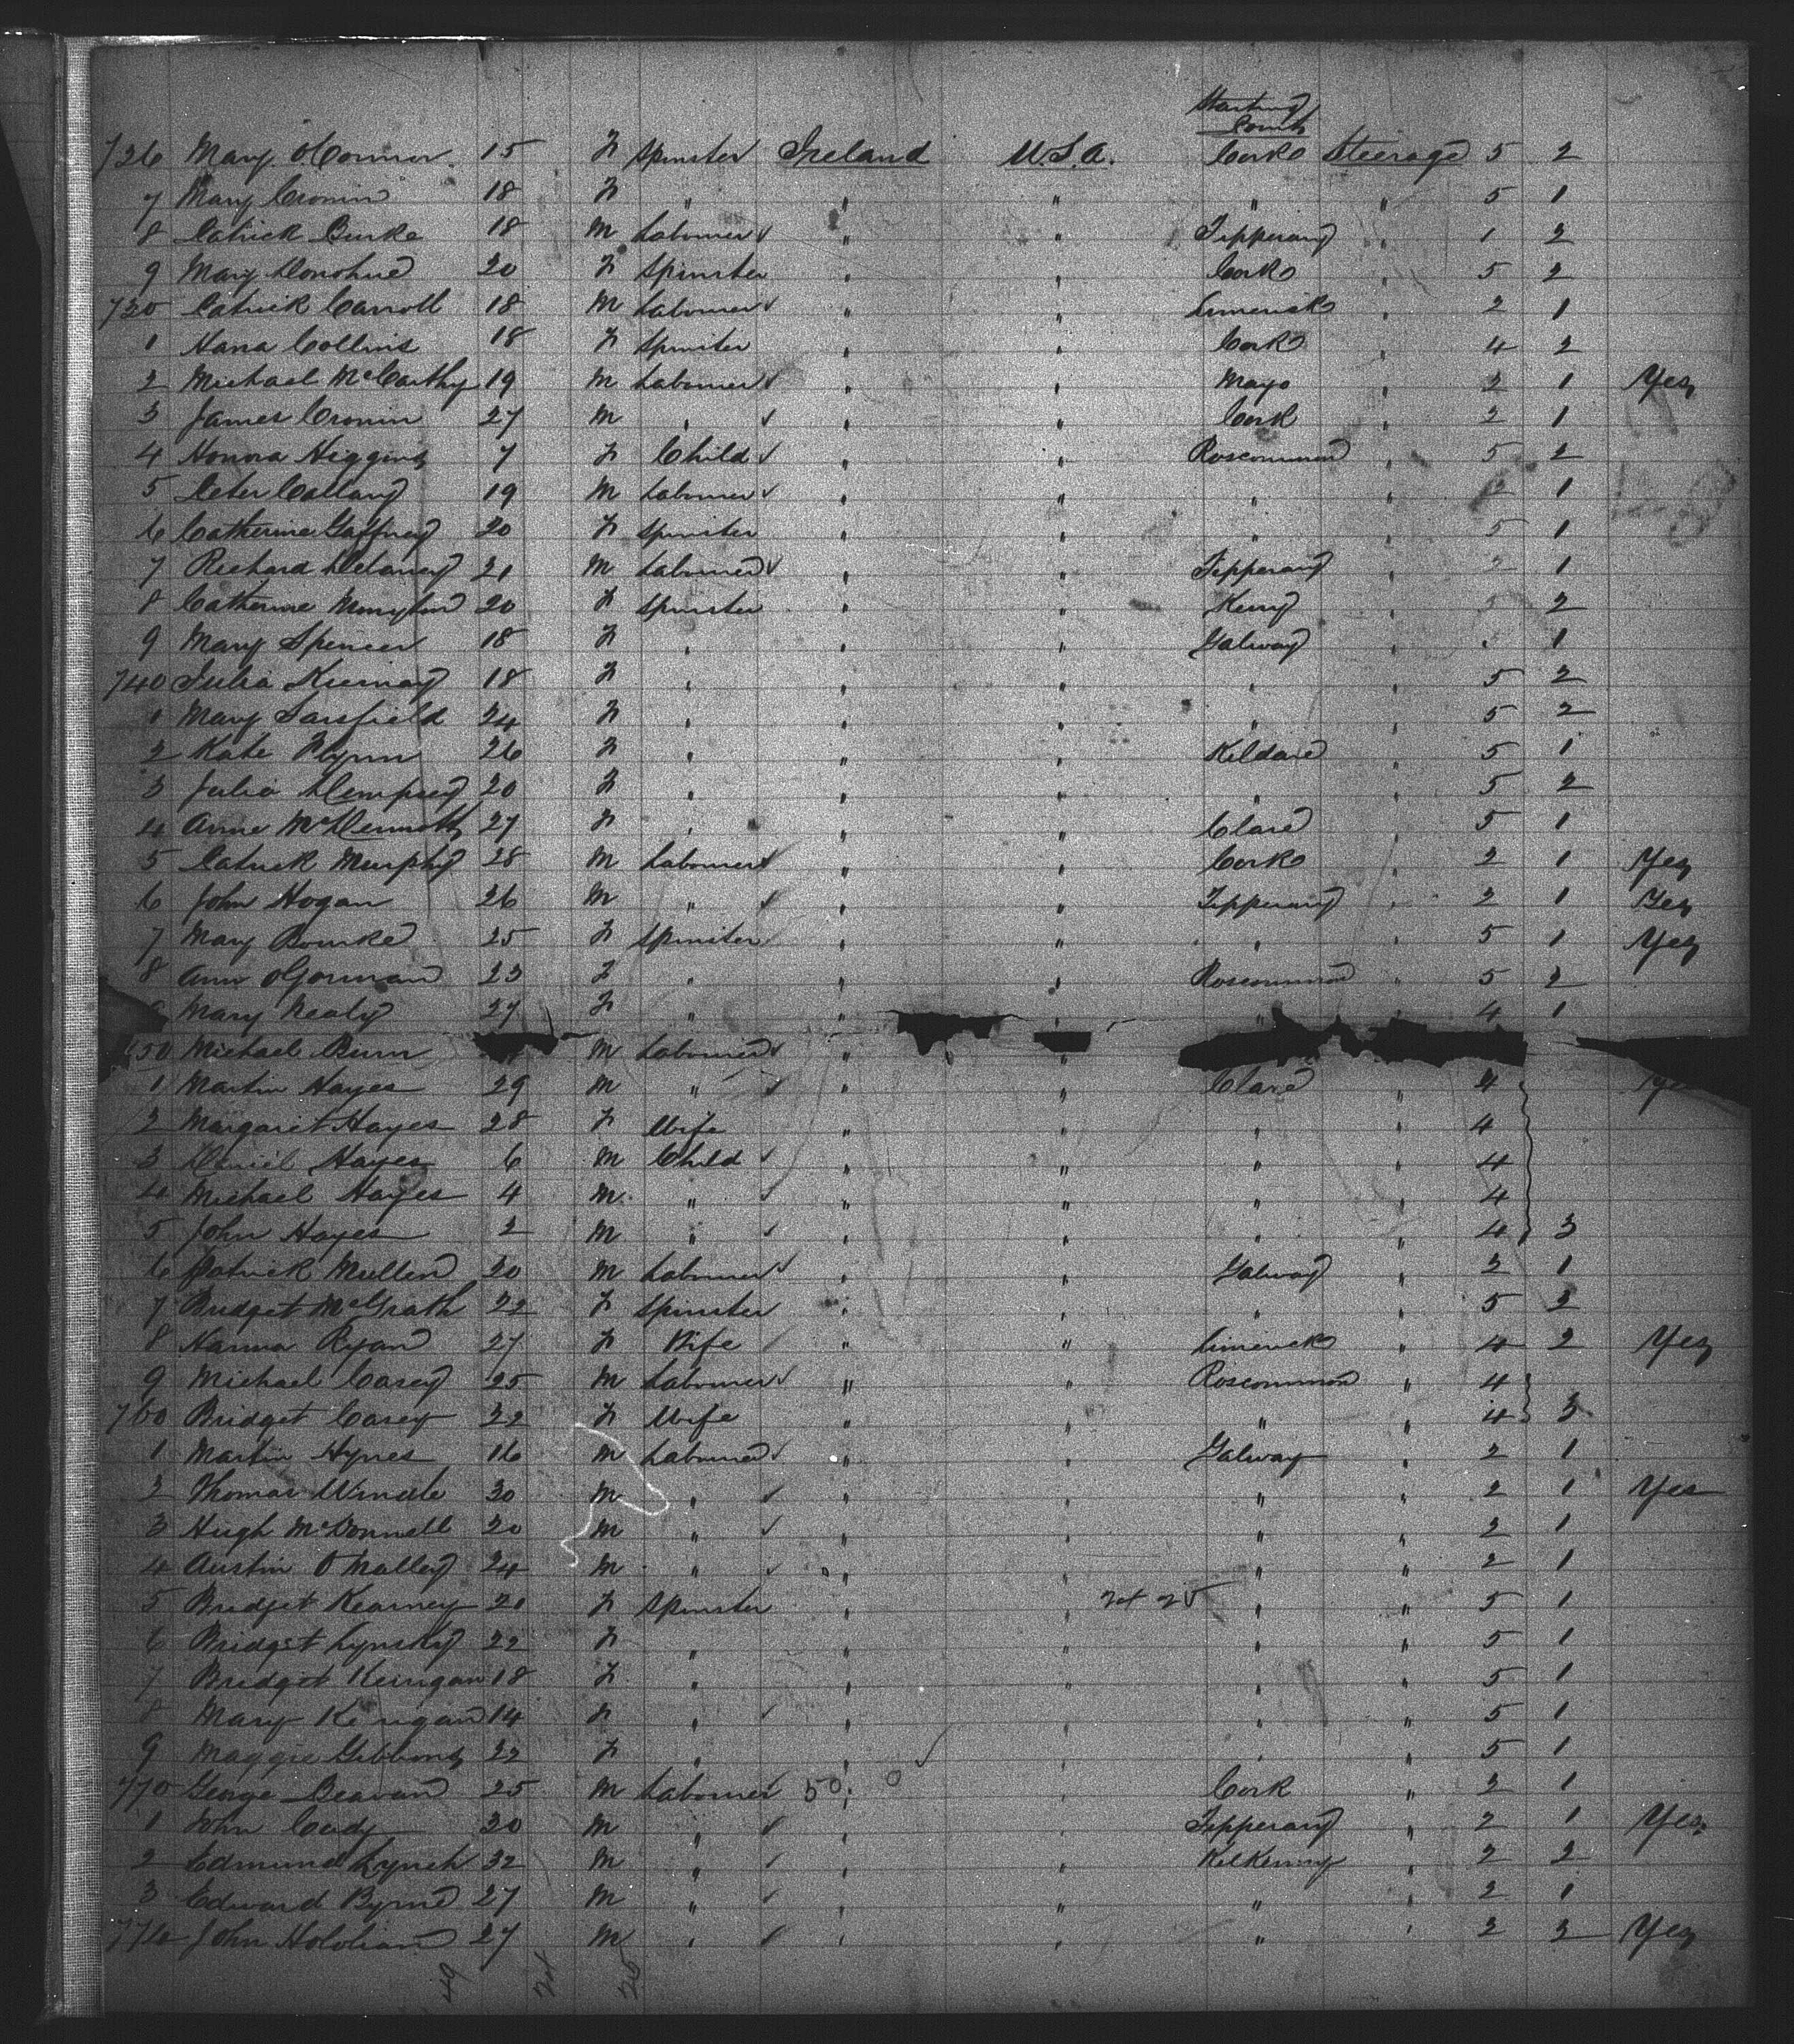 Starting
County
726 Mary OConnor 15 F Spinster Ireland U.S.A. Cork Steerage 5 2
7 Mary Cronin 18 F " " " " " 5 1
8 Patrick Burke 18 M Labourer " " Tipperary " 1 2
9 Mary Donohue 20 F Spinster " " Cork " 5 2
730 Patrick Carroll 18 M Labourer " " Limerick " 2 1
1 Hana Collins 18 F Spinster " " Cork " 4 2
2 Michael McCarthy 19 M Labourer " " Mayo " 2 1 Yes
3 James Cronin 27 M " " " Cork " 2 1
4 Honora Higgins 7 F Child " " Roscommon " 5 2
5 Peter Callany 19 M Labourer " " " " 2 1
6 Catherine Gaffney 20 F Spinster " " " " 5 1
7 Richard Delaney 21 M Labourer " " Tipperary " 2 1
8 Catherine 20 F Spinster " " Kerry " 2
9 Mary Spencer 18 F " " " Galway " 1
740 Julia 18 F " " " " " 5 2
1 Mary Sarsfield 24 F " " " " " 5 2
2 Kate Flynn 26 F " " " Kildare " 5 1
3 Julia Dempsey 20 F " " " " " 5 2
4 Anne McDermott 27 F " " " Clare " 5 1
5 Patrick Murphy 28 M Labourer " " Cork " 2 1 Yes
6 John Hogan 26 M " " " Tipperary " 2 1 Yes
7 Mary Bourke 25 F Spinster " " " " 5 1 Yes
8 Ann OGorman 23 F " " " Roscommon " 5 2
9 Mary Nealy 27 F " " " " " 4 1
750 Michael Burn M Labourer " "
1 Martin Hayes 29 M " " " Clare " 4 Yes
2 Margaret Hayes 28 F Wife " " " " 4
3 Daniel Hayes 6 M Child " " " " 4
4 Michael Hayes 4 M " " " " " 4
5 John Hayes 2 M " " " " " 4 3
6 Patrick Mullen 20 M Labourer " " Galway " 2 1
7 Bridget McGrath 22 F Spinster " " " " 5 2
8 Hanna Ryan 27 F Wife " " Limerick " 4 2 Yes
9 Michael Casey 25 M Labourer " " Roscommon " 4
760 Bridget Casey 22 F Wife " " " " 4 3
1 Martin Hynes 16 M Labourer " " Galway " 2 1
2 Thomas Windle 30 M " " " " " 2 1 Yes
3 Hugh McDonnell 20 M " " " " " 2 1
4 Austin O Malley 24 M " " " " " 2 1
5 Bridget Kearney 21 F Spinster " " " " 5 1
6 Bridget Lynskey 22 F " " " " " 5 1
7 Bridget Keirigan 18 F " " " " " 5 1
8 Mary Keirigan 14 F " " " " " 5 1
9 Maggie Gibbons 22 F " " " " " 5 1
770 George Beavan 25 M Labourer 50 " " Cork " 2 1
1 John Cudy 30 M " " " Tipperary " 2 1 Yes
2 Edmund Lynch 32 M " " " Kilkenny " 2 2
3 Edward Byrne 27 M " " " " " 2 1
774 John Holohan 27 M " " " " " 2 2 Yes
49 24 25